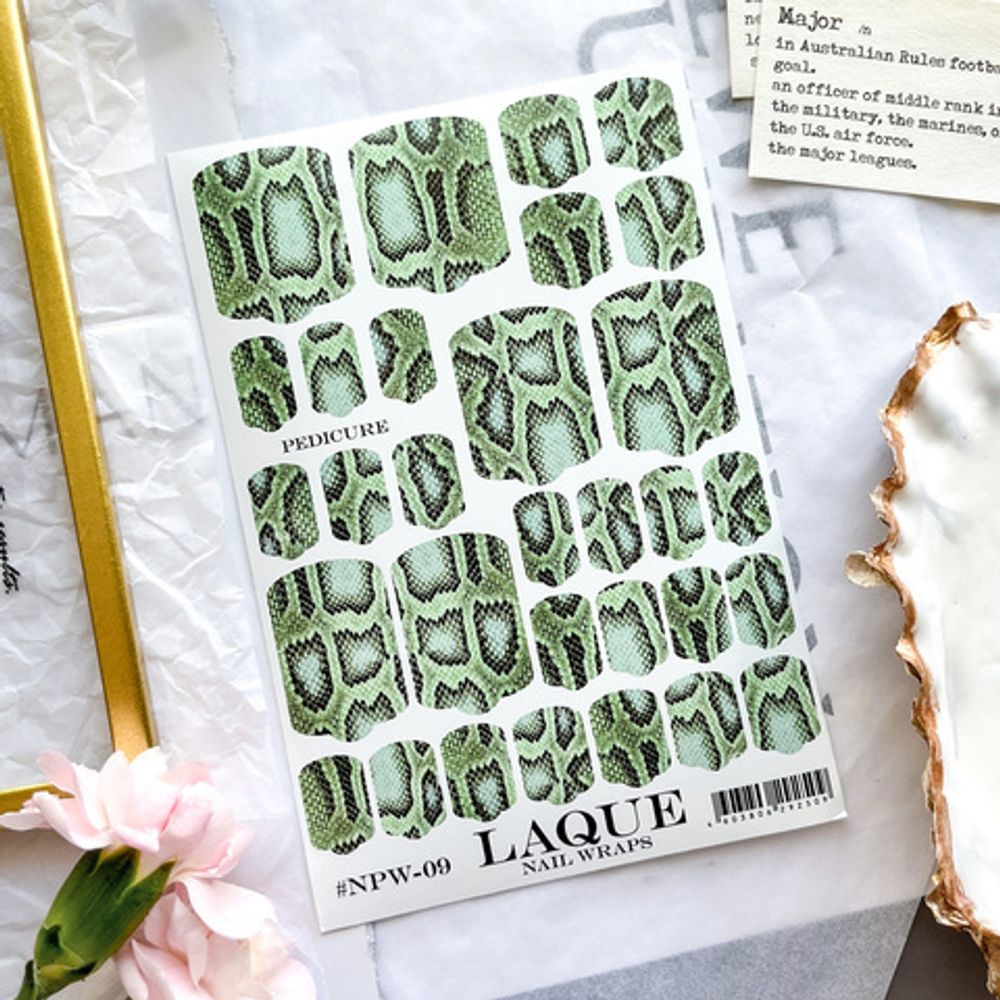 Major /n
in Australian Rules footba
goal.
an officer of middle rank in
the military, the marines, o
the U.S. air force.
the major leagues.
PEDICURE
LAQUE
NAIL WRAPS
#NPW-09